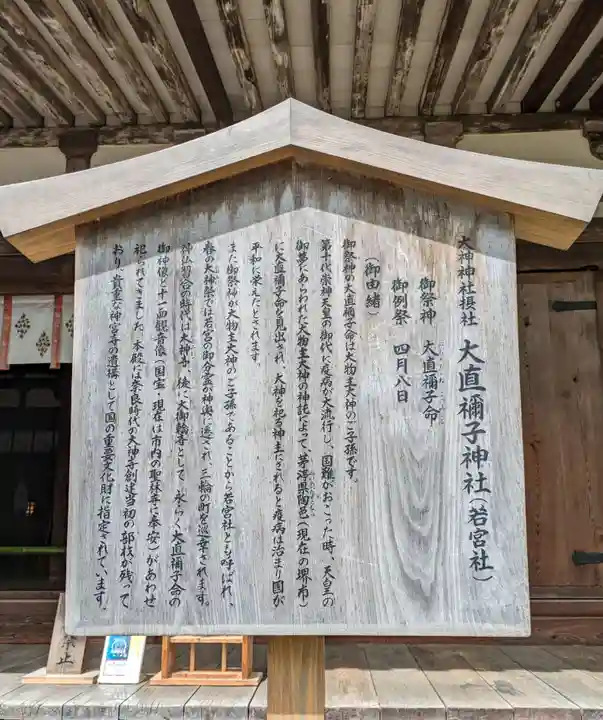 大神神社摂社 大直禰子神社(若宮社)
御祭神 大直禰子命
御例祭 四月八日
(御由緒)
御祭神の大直禰子命は大物主大神のご子孫です。
第十代崇神天皇の御代に疫病が大流行し、国難がおこった時、天皇の
御夢にあらわれた大物主大神の神託によって、茅渟県陶邑(現在の堺市)
に大直禰子命を見出され、大神を祀る神主にされると疫病は治まり国が
平和に栄えたとされます。
また御祭神が大物主大神のご子孫であることから若宮社とも呼ばれ、
春の大神祭では若宮の御分霊が神輿に遷され、三輪の町を巡幸されます。
神仏習合の時代は大神寺、後に大御輪寺として、永らく大直禰子命の
御神像と十一面観音像(国宝・現在は市内の聖林寺に奉安)があわせ
祀られてきました。本殿には奈良時代の大神寺創建当初の部材が残って
おり、貴重な神宮寺の遺構として国の重要文化財に指定されています。
禁止